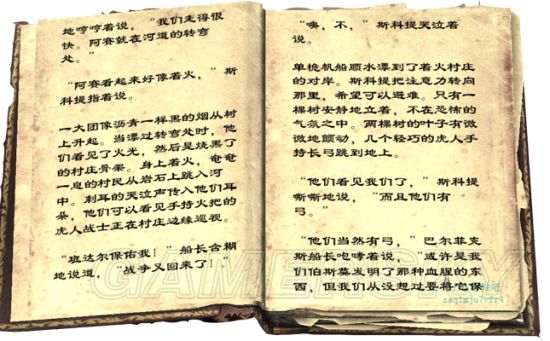 地哼哼着说，“我们走得很
快。阿赛就在河道的转弯
处。”
“阿赛看起来好像着火，”斯
科提指着说。
一大团像沥青一样黑的烟从村
上升起。当漂过转弯处时，他
们看见了火光，然后是烧黑了
的村庄骨架。身上着火，奄奄
一息的村民从岩石上跳入河
中。刺耳的哭泣声传入他们耳
朵，他们可以看见手持火把的
虎人战士正在村庄边缘巡视。
“班达尔保佑我！”船长含糊
地说道，“战争又回来了！”
“噢，不，”斯科提哭泣着
说。
单桅帆船顺水漂到了着火村庄
的对岸。斯科提把注意力转向
那里，希望可以避难。只有一
棵树安静地立着，不在恐怖的
气氛之中。两棵树的叶子有微
微地颤动，几个轻巧的虎人手
持长弓跳到地上。
“他们看见我们了，”斯科提
嘶嘶地说，“而且他们有
弓。”
“他们当然有弓，”巴尔菲克
斯船长咆哮着说，“或许是我
们伯斯莫发明了那种血腥的东
西，但我们从没想过要将它保
GAMERSKY
zaqimju7vfr4